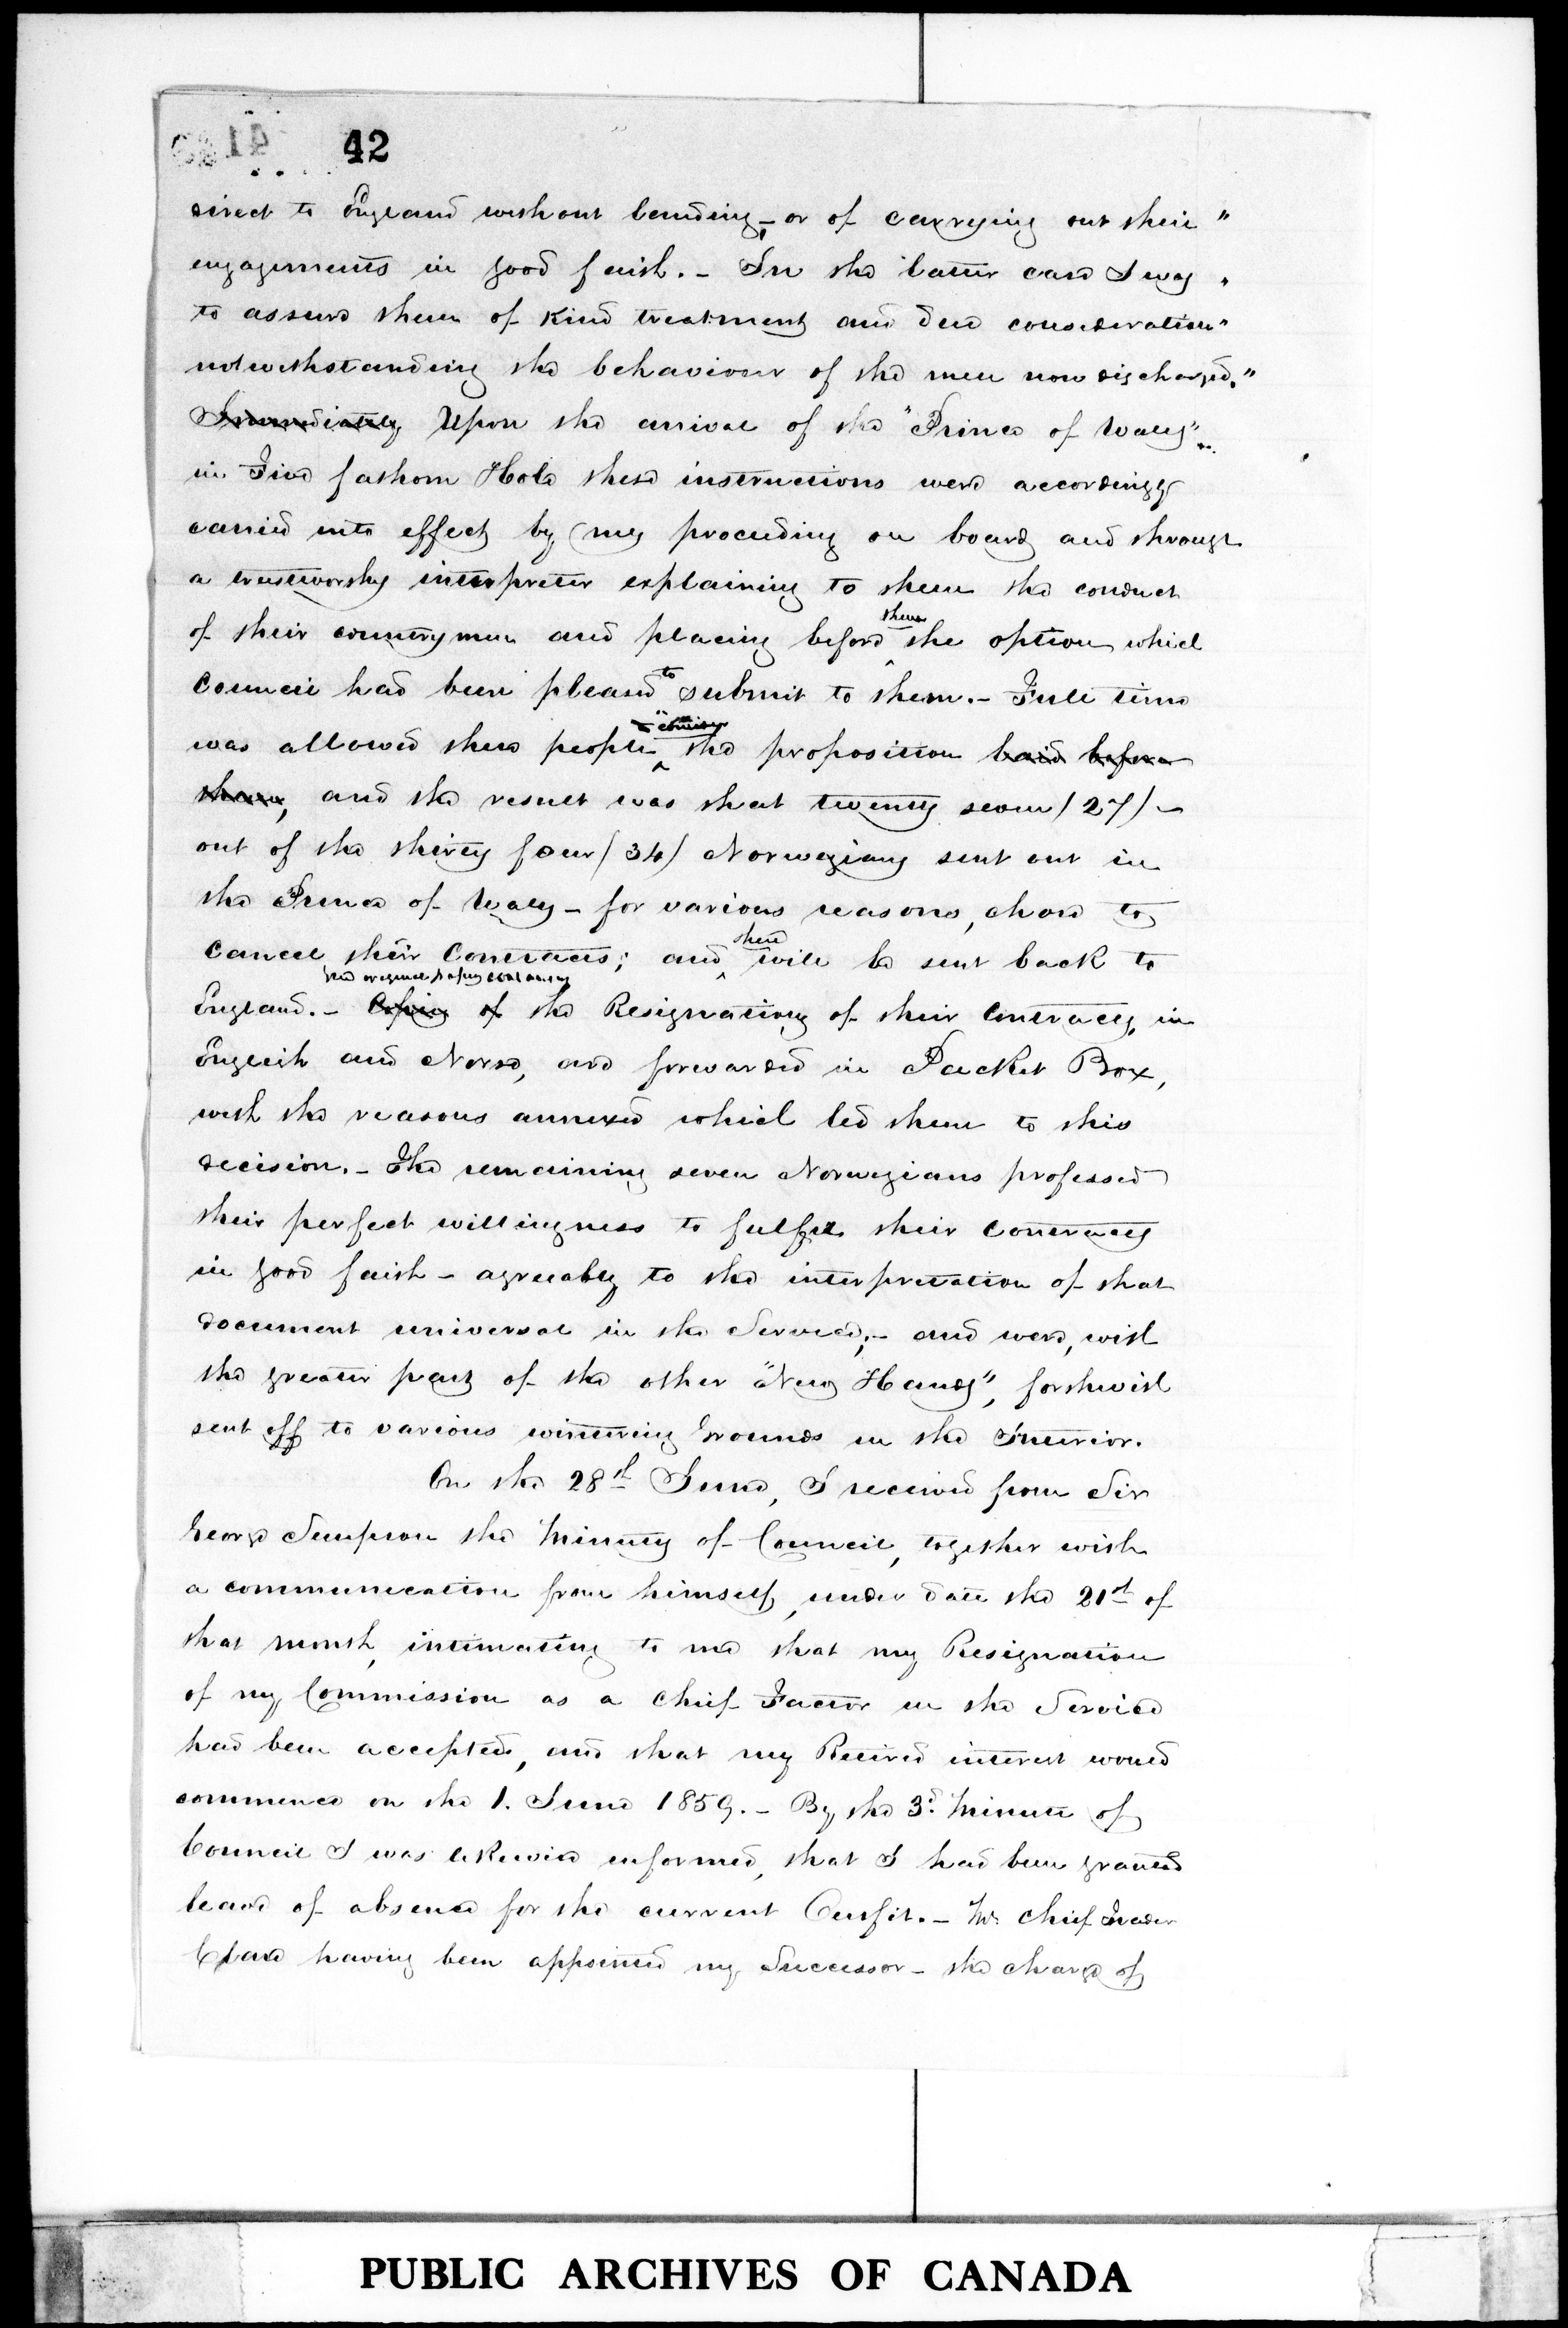 42
direct to England without landing, – or of carrying out their "
engagements in good faith. – In the latter case I was "
to assure them of kind treatment and due consideration "
notwithstanding the behaviour of the men now discharged."
Immediately Upon the arrival of the "Prince of Wales"
in Five fathom Hole these instructions were accordingly
carried into effect by my proceeding on board and through
a trustworthy interpreter explaining to them the conduct
them
of their countrymen and placing before the option which
to
Council had been pleased submit to them. – Full time
to consider
was allowed these people the proposition laid before
them, and the result was that twenty seven / 27 / –
out of the thirty four / 34 / Norwegians sent out in
the Prince of Wales – for various reasons, chose to
these
cancel their Contracts; and will be sent back to
The original
England. – Copies of the Resignations of their Contracts, in
English and Norse, are forwarded in Packet Box,
with the reasons annexed which led them to this
decision. – The remaining seven Norwegians professed
their perfect willingness to fulfil their Contracts
in good faith – agreeably to the interpretation of that
document universal in the Service; – and were, with
the greater part of the other "New Hands", forthwith
sent off to various wintering Grounds in the Interior.
On the 28th June, I received from Sir
George Simpson the Minutes of Council, together with
a communication from himself, under date the 21st of
that month, intimating to me that my Resignation
of my Commission as a Chief Factor in the Service
had been accepted, and that my Retired interest would
commence on the 1. June 1859. – By the 3d. Minute of
Council I was likewise informed, that I had been granted
leave of absence for the current Outfit. – Mr. Chief Trader
Clare having been appointed my Successor – the charge of
PUBLIC ARCHIVES OF CANADA